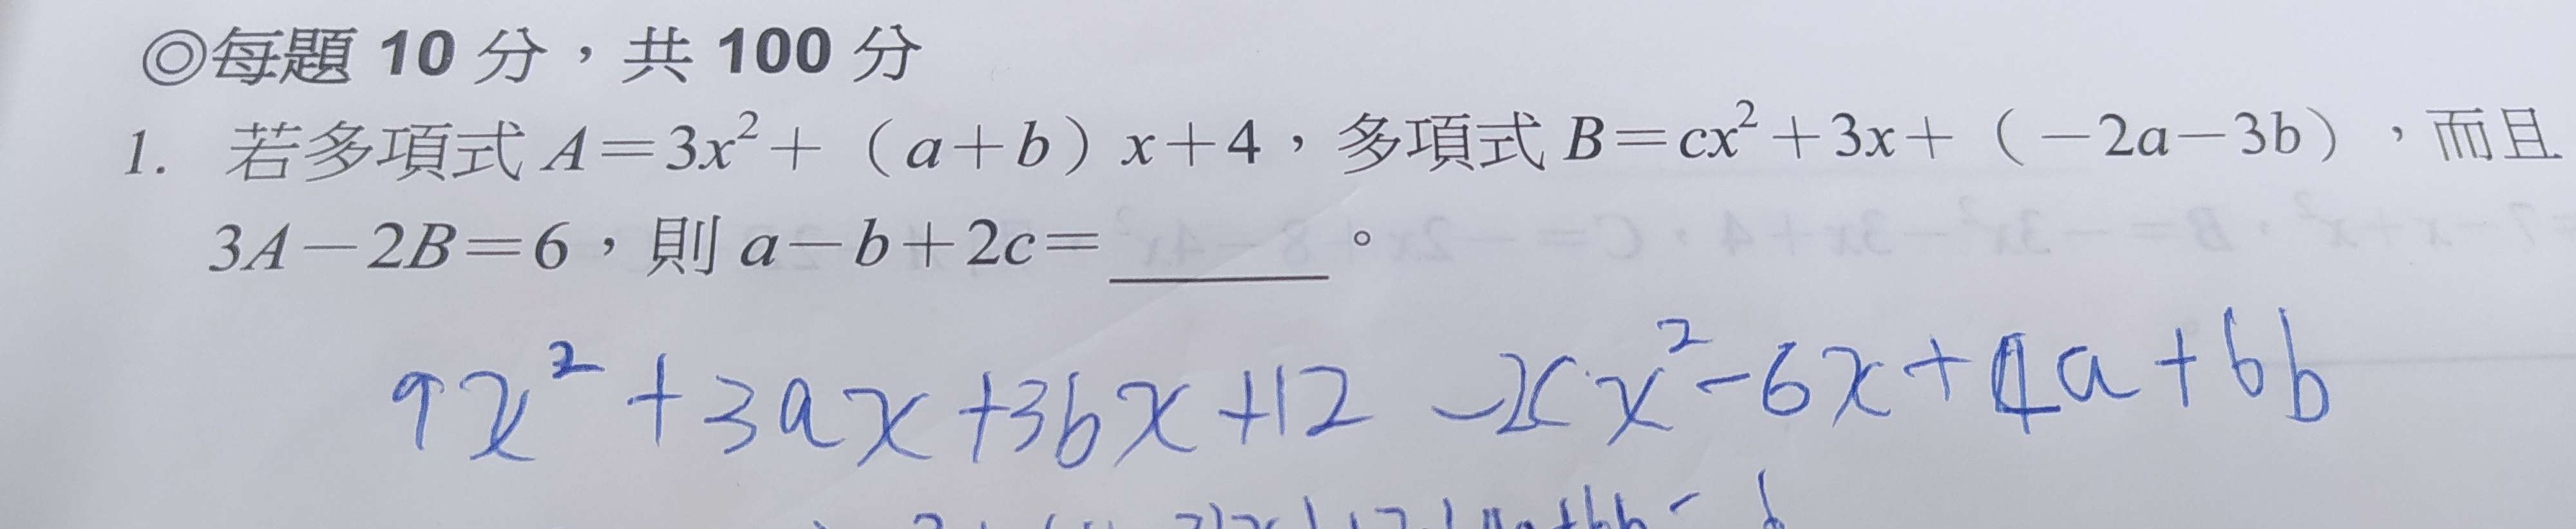 ◎每題 10 分，共 100 分
1. 若多項式 A＝3x²＋（a＋b）x＋4，多項式 B＝cx²＋3x＋（－2a－3b），而且
3A－2B＝6，則 a－b＋2c＝______。
9x²+3ax+3bx+12-2cx²-6x+4a+6b